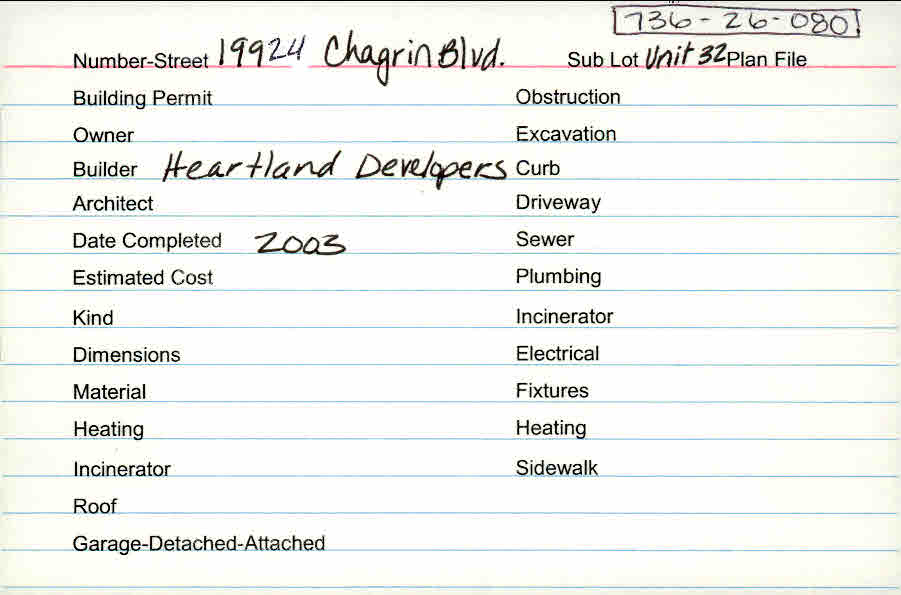 736-26-080
Number-Street 19924 Chagrin Blvd. Sub Lot Unit 32 Plan File
Building Permit Obstruction
Owner Excavation
Builder Heartland Developers Curb
Architect Driveway
Date Completed 2003 Sewer
Estimated Cost Plumbing
Kind Incinerator
Dimensions Electrical
Material Fixtures
Heating Heating
Incinerator Sidewalk
Roof
Garage-Detached-Attached